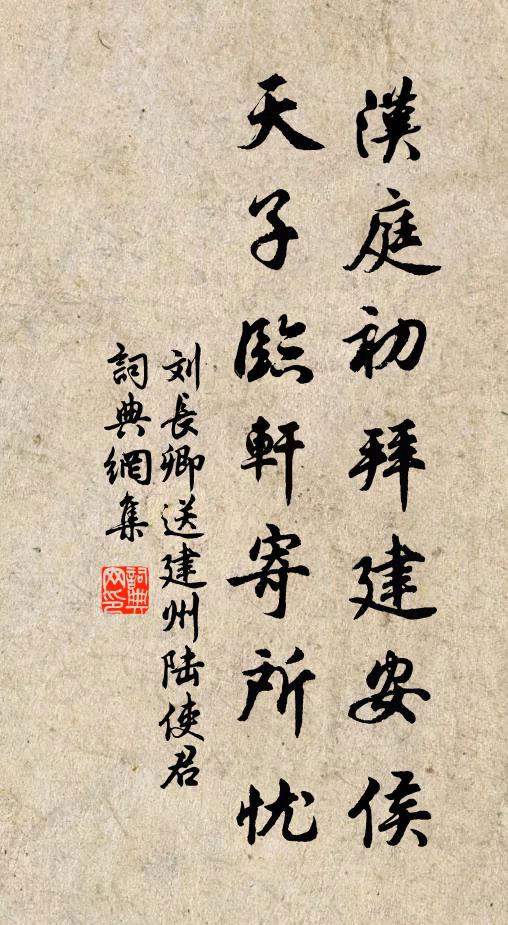 漢庭初拜建安侯
天子臨軒寄所忧
刘長卿送建州陆使君
詞典網集
詞典网印